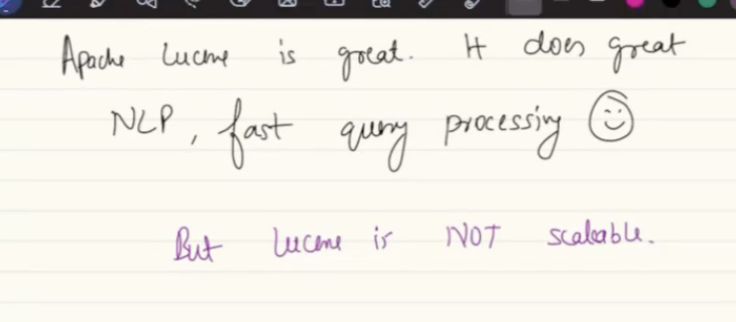 Apache Lucene is great. It does great
NLP, fast query processing
But Lucene is NOT scalable.